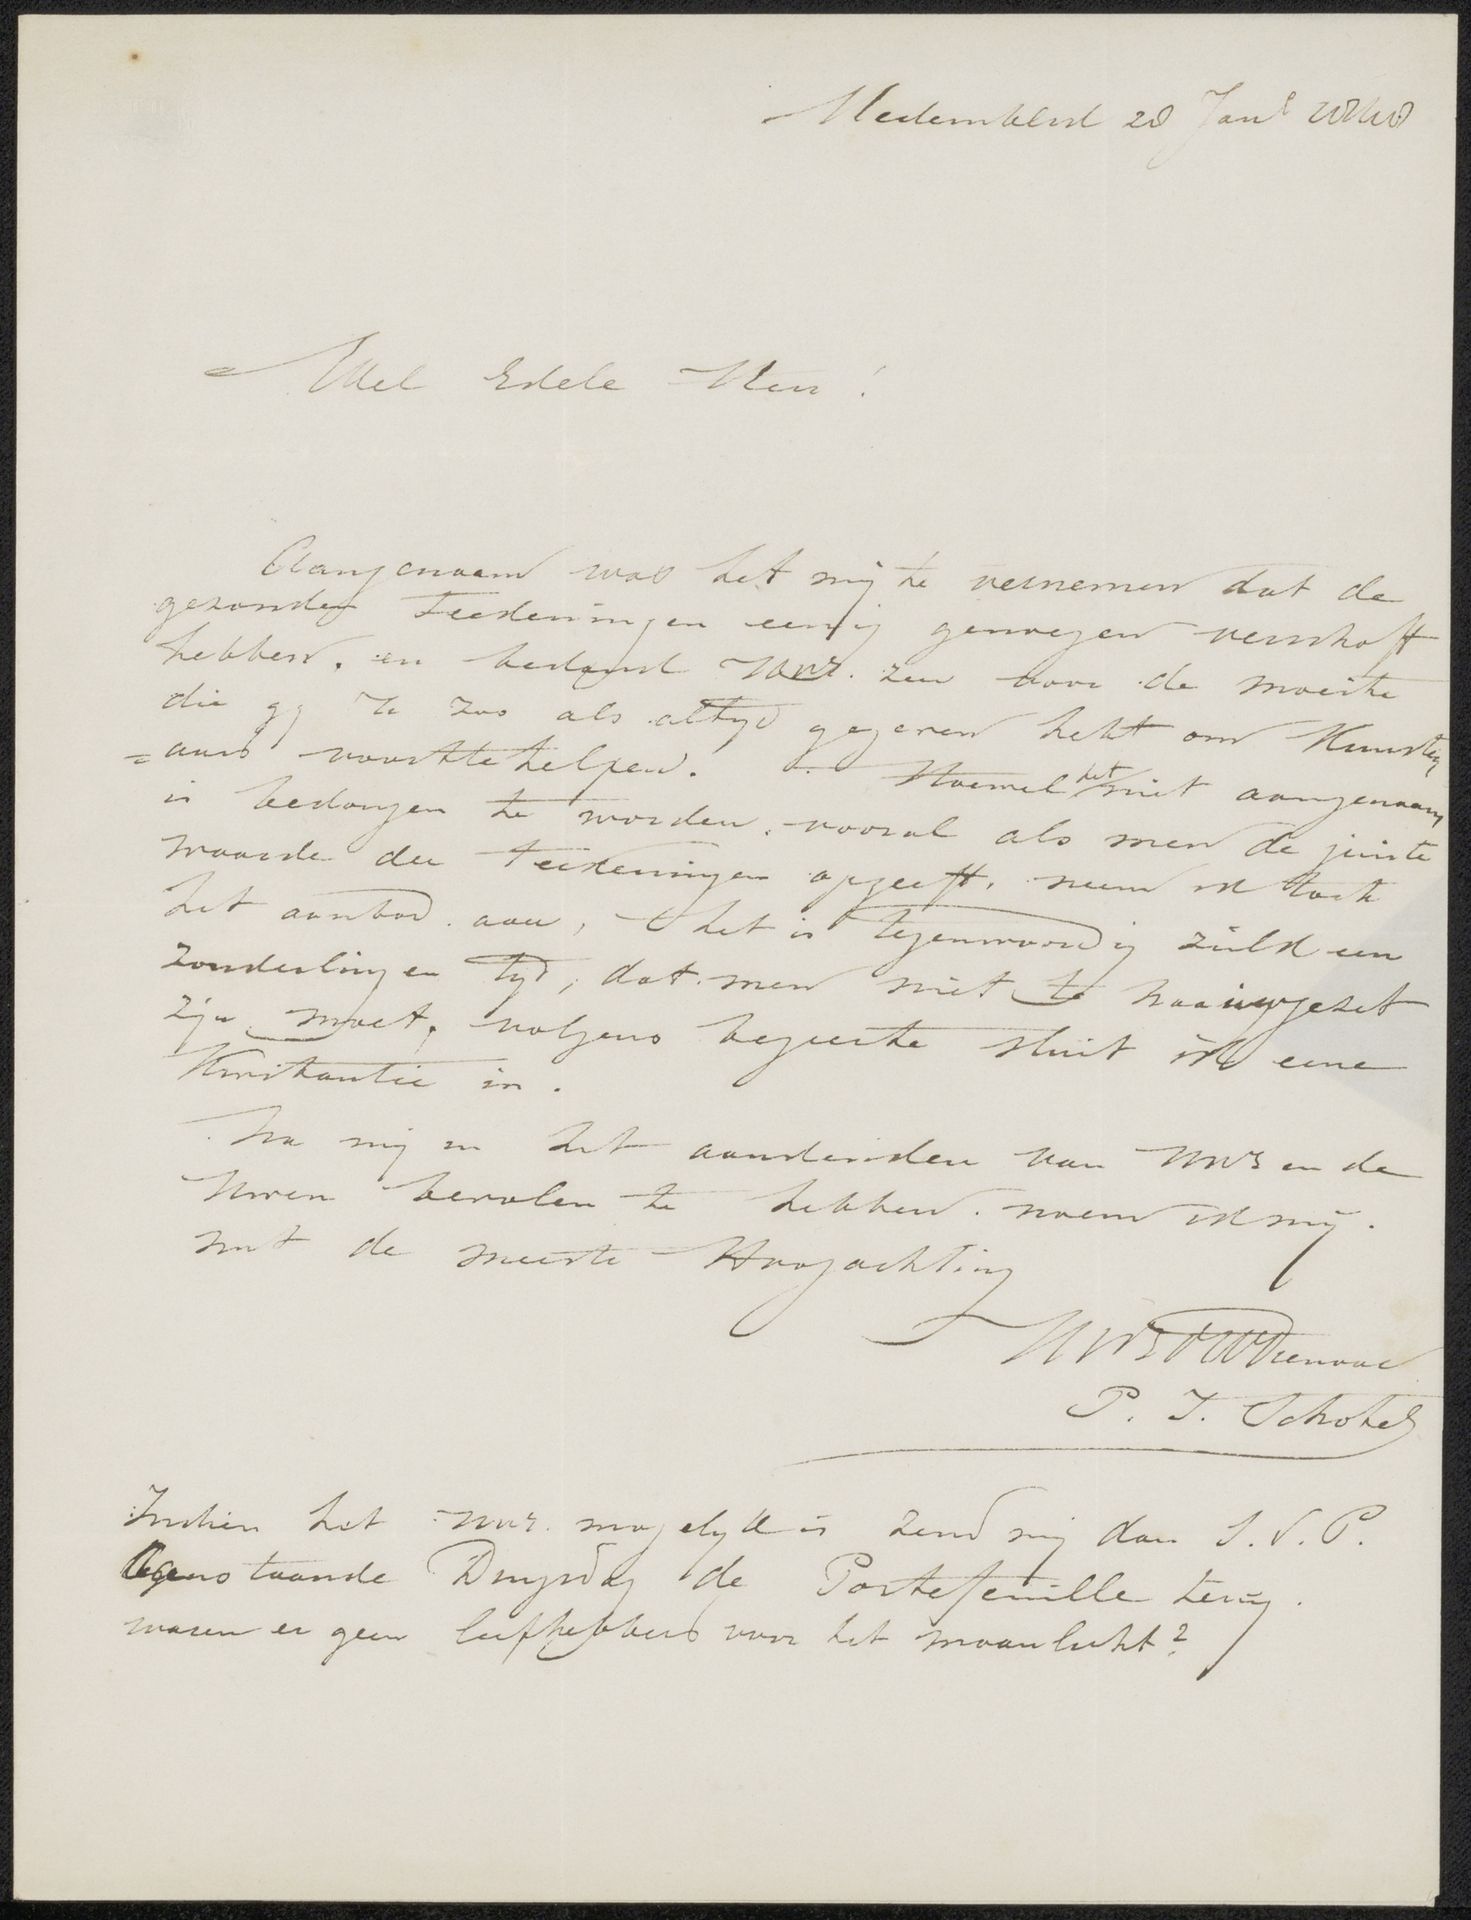 Medemblik 28 Jan
Wel Edele Heer!
Aangenaam was het mij te vernemen dat de
gezonden Teekeningen eenig genoegen verschaft
hebben. en bedankt UWE. zeer voor de moeite
die gij U zoo als altyd gegeven hebt om Kunsten
=aars voorttehelpen. Hoewel het niet aangenaam
is bedongen te worden. vooral als men de juiste
waarde der teekeningen opgeeft. neem ik toch
het aanbod aan, het is tegenwoordig zulk een
zonderlingen tyd, dat men niet te naauwgezet
zijn moet, volgens begeerte sluit ik eene
Kwitantie in.
Na mij in het aandenken van UWE en de
Uwen bevolen te hebben. noem ik mij.
met de meeste Hoogachting
UWE Dienaar
P. J. Schotel
Indien het UWE. mogelyk is zend mij dan S.V.P.
aanstaande Dingsdag de Portefeuille terug.
waren er geen liefhebbers voor het maanlicht?